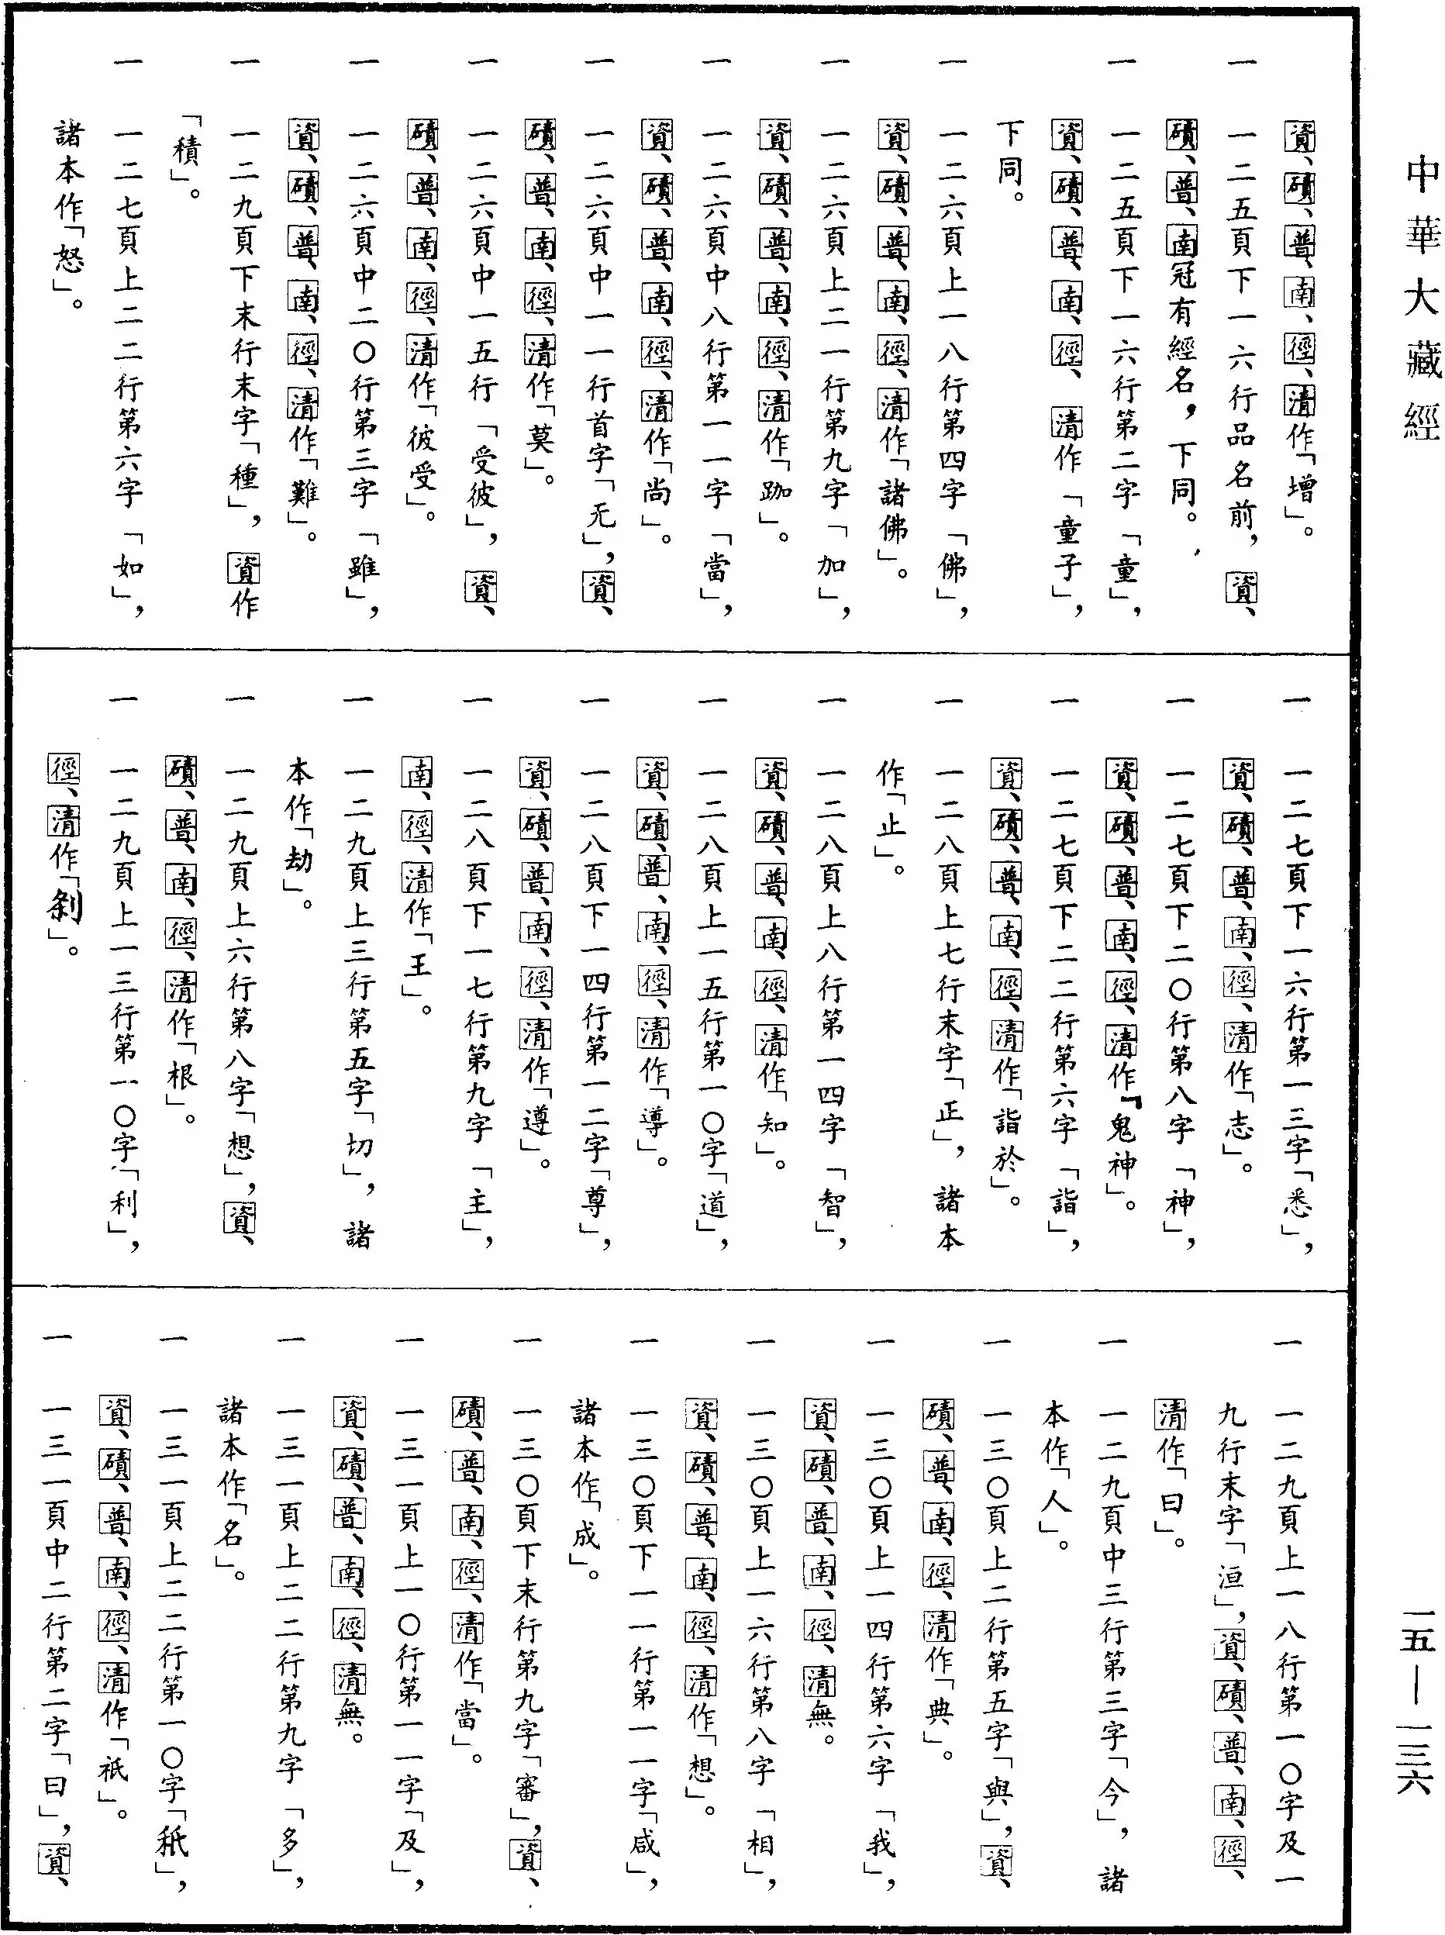 中華大藏經
資、磧、普、南、徑、清作「增」。
一 一二五頁下一六行品名前，資、
磧、普、南冠有經名，下同。
一 一二五頁下一六行第二字「童」，
資、磧、普、南、徑、清作「童子」，
下同。
一 一二六頁上一八行第四字「佛」，
資、磧、普、南、徑、清作「諸佛」。
一 一二六頁上二一行第九字「加」，
資、磧、普、南、徑、清作「跏」。
一 一二六頁中八行第一一字「當」，
資、磧、普、南、徑、清作「尚」。
一 一二六頁中一一行首字「无」，資、
磧、普、南、徑、清作「莫」。
一 一二六頁中一五行「受彼」，資、
磧、普、南、徑、清作「彼受」。
一 一二六頁中二〇行第三字「雖」，
資、磧、普、南、徑、清作「難」。
一 一二九頁下末行末字「種」，資作
「積」。
一 一二七頁上二二行第六字「如」，
諸本作「怒」。
一 一二七頁下一六行第一三字「悉」，
資、磧、普、南、徑、清作「志」。
一 一二七頁下二〇行第八字「神」，
資、磧、普、南、徑、清作「鬼神」。
一 一二七頁下二二行第六字「詣」，
資、磧、普、南、徑、清作「詣於」。
一 一二八頁上七行末字「正」，諸本
作「止」。
一 一二八頁上八行第一四字「智」，
資、磧、普、南、徑、清作「知」。
一 一二八頁上一五行第一〇字「道」，
資、磧、普、南、徑、清作「導」。
一 一二八頁下一四行第一二字「尊」，
資、磧、普、南、徑、清作「遵」。
一 一二八頁下一七行第九字「主」，
南、徑、清作「王」。
一 一二九頁上三行第五字「切」，諸
本作「劫」。
一 一二九頁上六行第八字「想」，資、
磧、普、南、徑、清作「根」。
一 一二九頁上一三行第一〇字「利」，
徑、清作「剎」。
一 一二九頁上一八行第一〇字及一
九行末字「洹」，資、磧、普、南、徑、
清作「曰」。
一 一二九頁中三行第三字「今」，諸
本作「人」。
一 一三〇頁上二行第五字「與」，資、
磧、普、南、徑、清作「典」。
一 一三〇頁上一四行第六字「我」，
資、磧、普、南、徑、清無。
一 一三〇頁上一六行第八字「相」，
資、磧、普、南、徑、清作「想」。
一 一三〇頁下一一行第一一字「咸」，
諸本作「成」。
一 一三〇頁下末行第九字「審」，資、
磧、普、南、徑、清作「當」。
一 一三一頁上一〇行第一一字「及」，
資、磧、普、南、徑、清無。
一 一三一頁上二二行第九字「多」，
諸本作「名」。
一 一三一頁上二二行第一〇字「秖」，
資、磧、普、南、徑、清作「衹」。
一 一三一頁中二行第二字「曰」，資、
一五—一三六